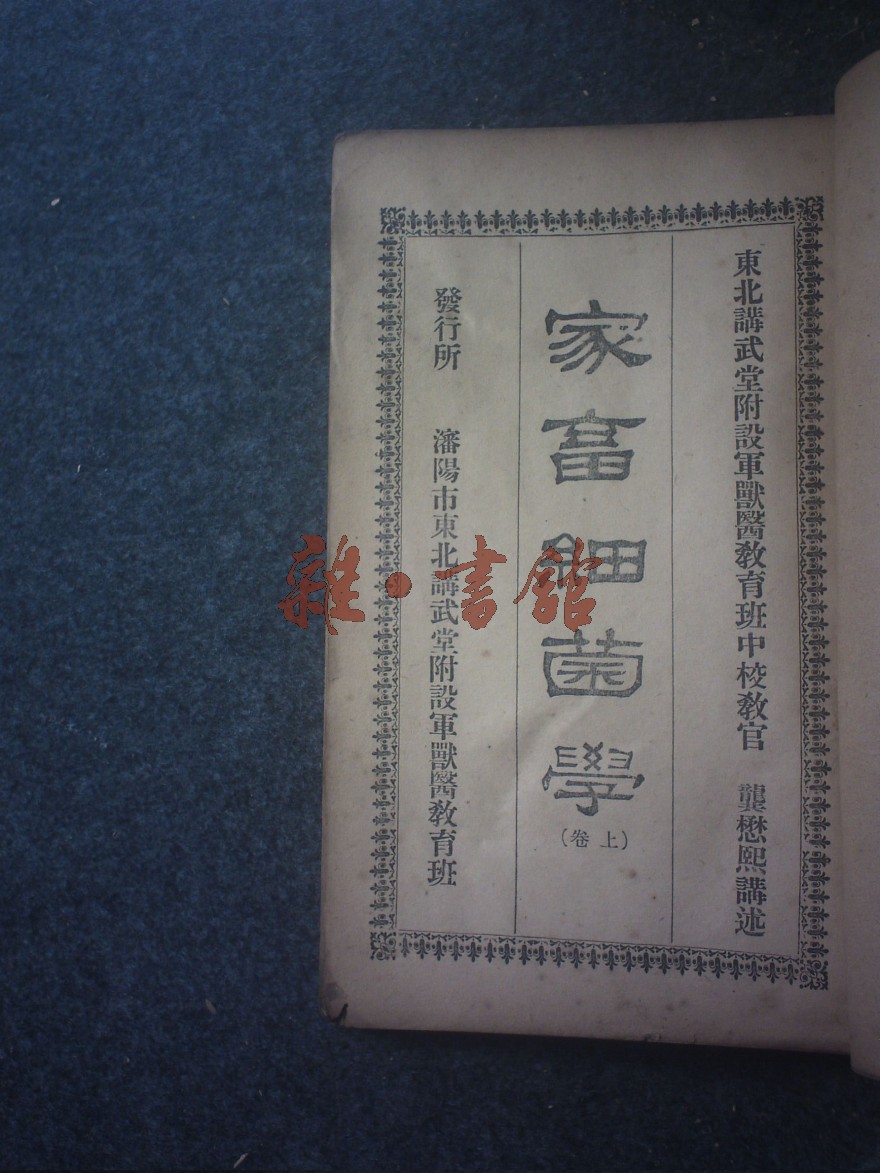 東北講武堂附設軍獸醫敎育班中校敎官 龔懋熙講述
家畜細菌學
(卷上)
發行所 瀋陽市東北講武堂附設軍獸醫敎育班
雜·書館